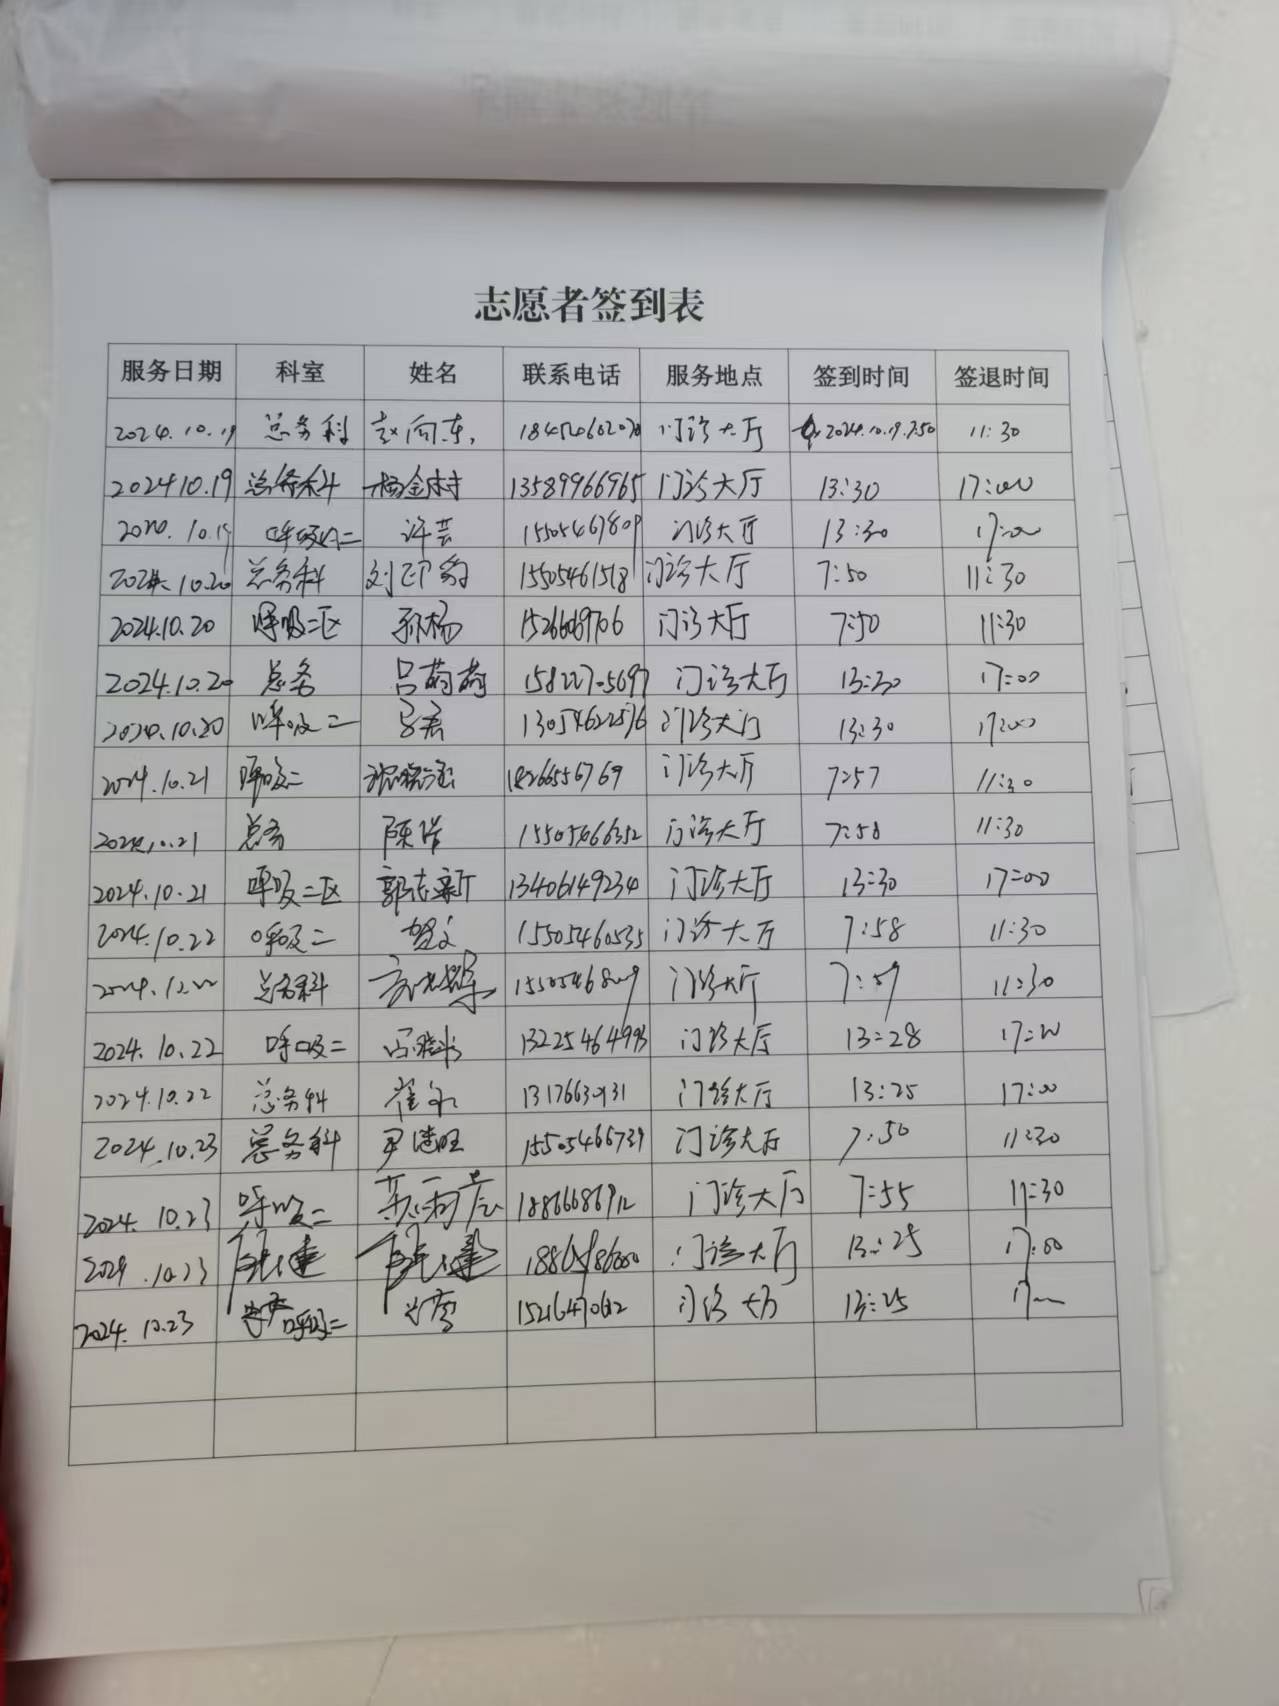 志愿者签到表
服务日期 科室 姓名 联系电话 服务地点 签到时间 签退时间
2024.10.19 总务科 赵向东 门诊大厅 2024.10.19.7.50 11:30
2024.10.19 总务科 杨金村 13589966965 门诊大厅 13:30 17:00
10.19 呼吸内二 许芸 15505467809 门诊大厅 13:30 17:00
2024.10.20 总务科 15505461518 门诊大厅 7:50 11:30
2024.10.20 呼吸二区 孙杨 门诊大厅 7:50 11:30
2024.10.20 总务 吕萌萌 15822705697 门诊大厅 13:30 17:00
2024.10.20 呼吸二 13054622576 门诊大门 13:30 17:00
2024.10.21 呼吸二 18266556769 门诊大厅 7:57 11:30
2024.10.21 总务 门诊大厅 7:58 11:30
2024.10.21 呼吸二区 郭志新 13406149234 门诊大厅 13:30 17:00
2024.10.22 呼吸二 贺文 15505460535 门诊大厅 7:58 11:30
总务科 门诊大厅 7:59 11:30
2024.10.22 呼吸二 13225464993 门诊大厅 13:28 17:00
2024.10.22 总务科 门诊大厅 13:25 17:00
2024.10.23 总务科 15505466739 门诊大厅 7:50 11:30
2024.10.23 呼吸二 18866686912 门诊大厅 7:55 11:30
2024.10.23 门诊大厅 13:25 17:00
2024.10.23 呼吸二 门诊大厅 13:25